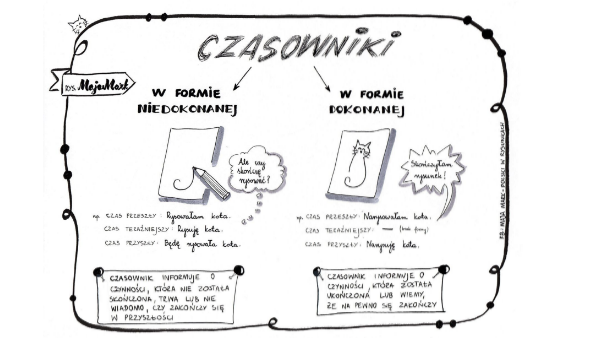 CZASOWNIKI
RYS. MajaMark
W FORMIE
NIEDOKONANEJ
W FORMIE
DOKONANEJ
Ale czy
skończę
rysować?
Skończyłam
rysunek!
np. CZAS PRZESZŁY: Rysowałam kota.
CZAS TERAŹNIEJSZY: Rysuję kota.
CZAS PRZYSZŁY: Będę rysowała kota.
np. CZAS PRZESZŁY: Narysowałam kota.
CZAS TERAŹNIEJSZY: — (brak formy)
CZAS PRZYSZŁY: Narysuję kota.
CZASOWNIK INFORMUJE O
CZYNNOŚCI, KTÓRA NIE ZOSTAŁA
SKOŃCZONA, TRWA LUB NIE
WIADOMO, CZY ZAKOŃCZY SIĘ
W PRZYSZŁOŚCI
CZASOWNIK INFORMUJE O
CZYNNOŚCI, KTÓRA ZOSTAŁA
UKOŃCZONA LUB WIEMY,
ŻE NA PEWNO SIĘ ZAKOŃCZY
FB: MAJA MARK - POLSKI W RYSUNKACH